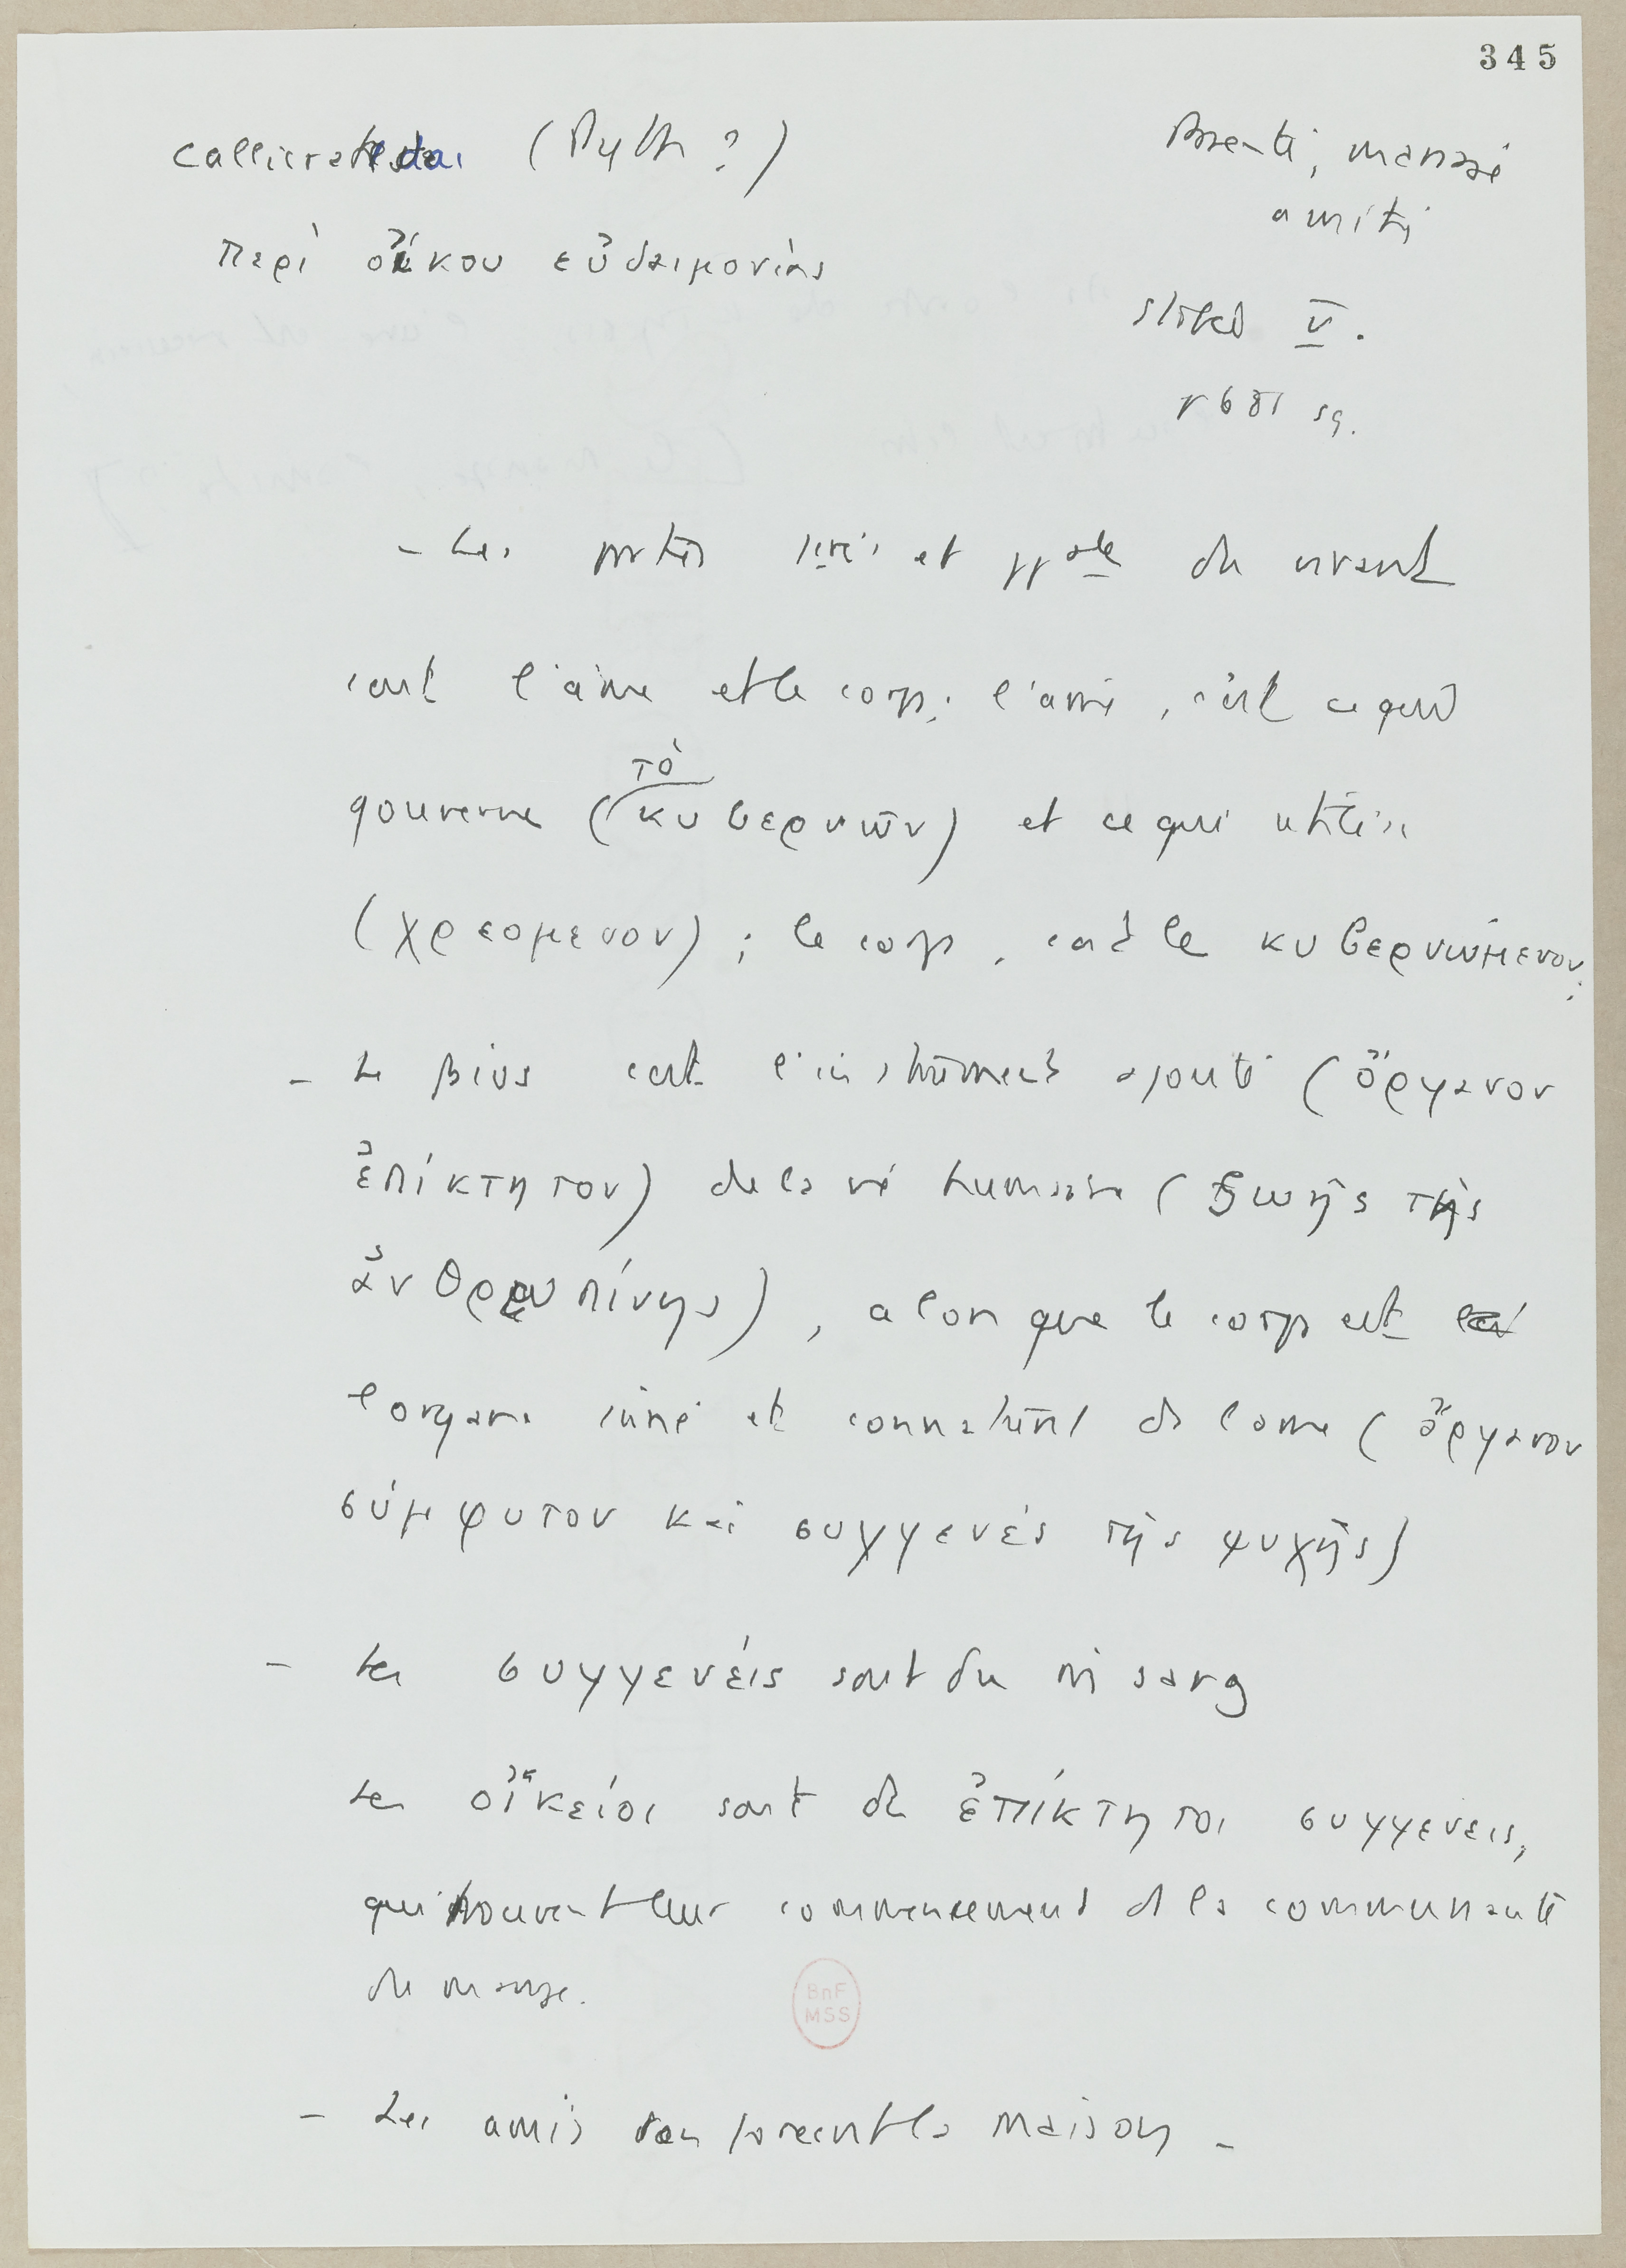 345
Callicratidas (Pyth ?)
Parenté, mariage
amitié
περὶ οἴκου εὐδαιμονίας
Stobée V.
p 681 sq.
- Les parties 1res et ppales du vivant
sont l'âme et le corps; l'âme, c'est ce qui
gouverne (τὸ κυβερνῶν) et ce qui utilise
(χρεομενον) ; le corps, c'est le κυβερνώμενον;
- Le βίος est l'instrument ajouté (ὄργανον
ἐπίκτητον) de la vie humaine (ζωῆς τῆς
ἀνθρωπίνης), alors que le corps est
l'organe inné et connaturel de l'âme (ὄργανον
σύμφυτον καὶ συγγενές τῆς ψυχῆς)
- les συγγενέις sont du m sang
les οἴκείοι sont des ἐπίκτητοι συγγενεις,
qui trouvent leur commencement ds la communauté
du mariage.
BnF
MSS
- Les amis accroissent la maison -